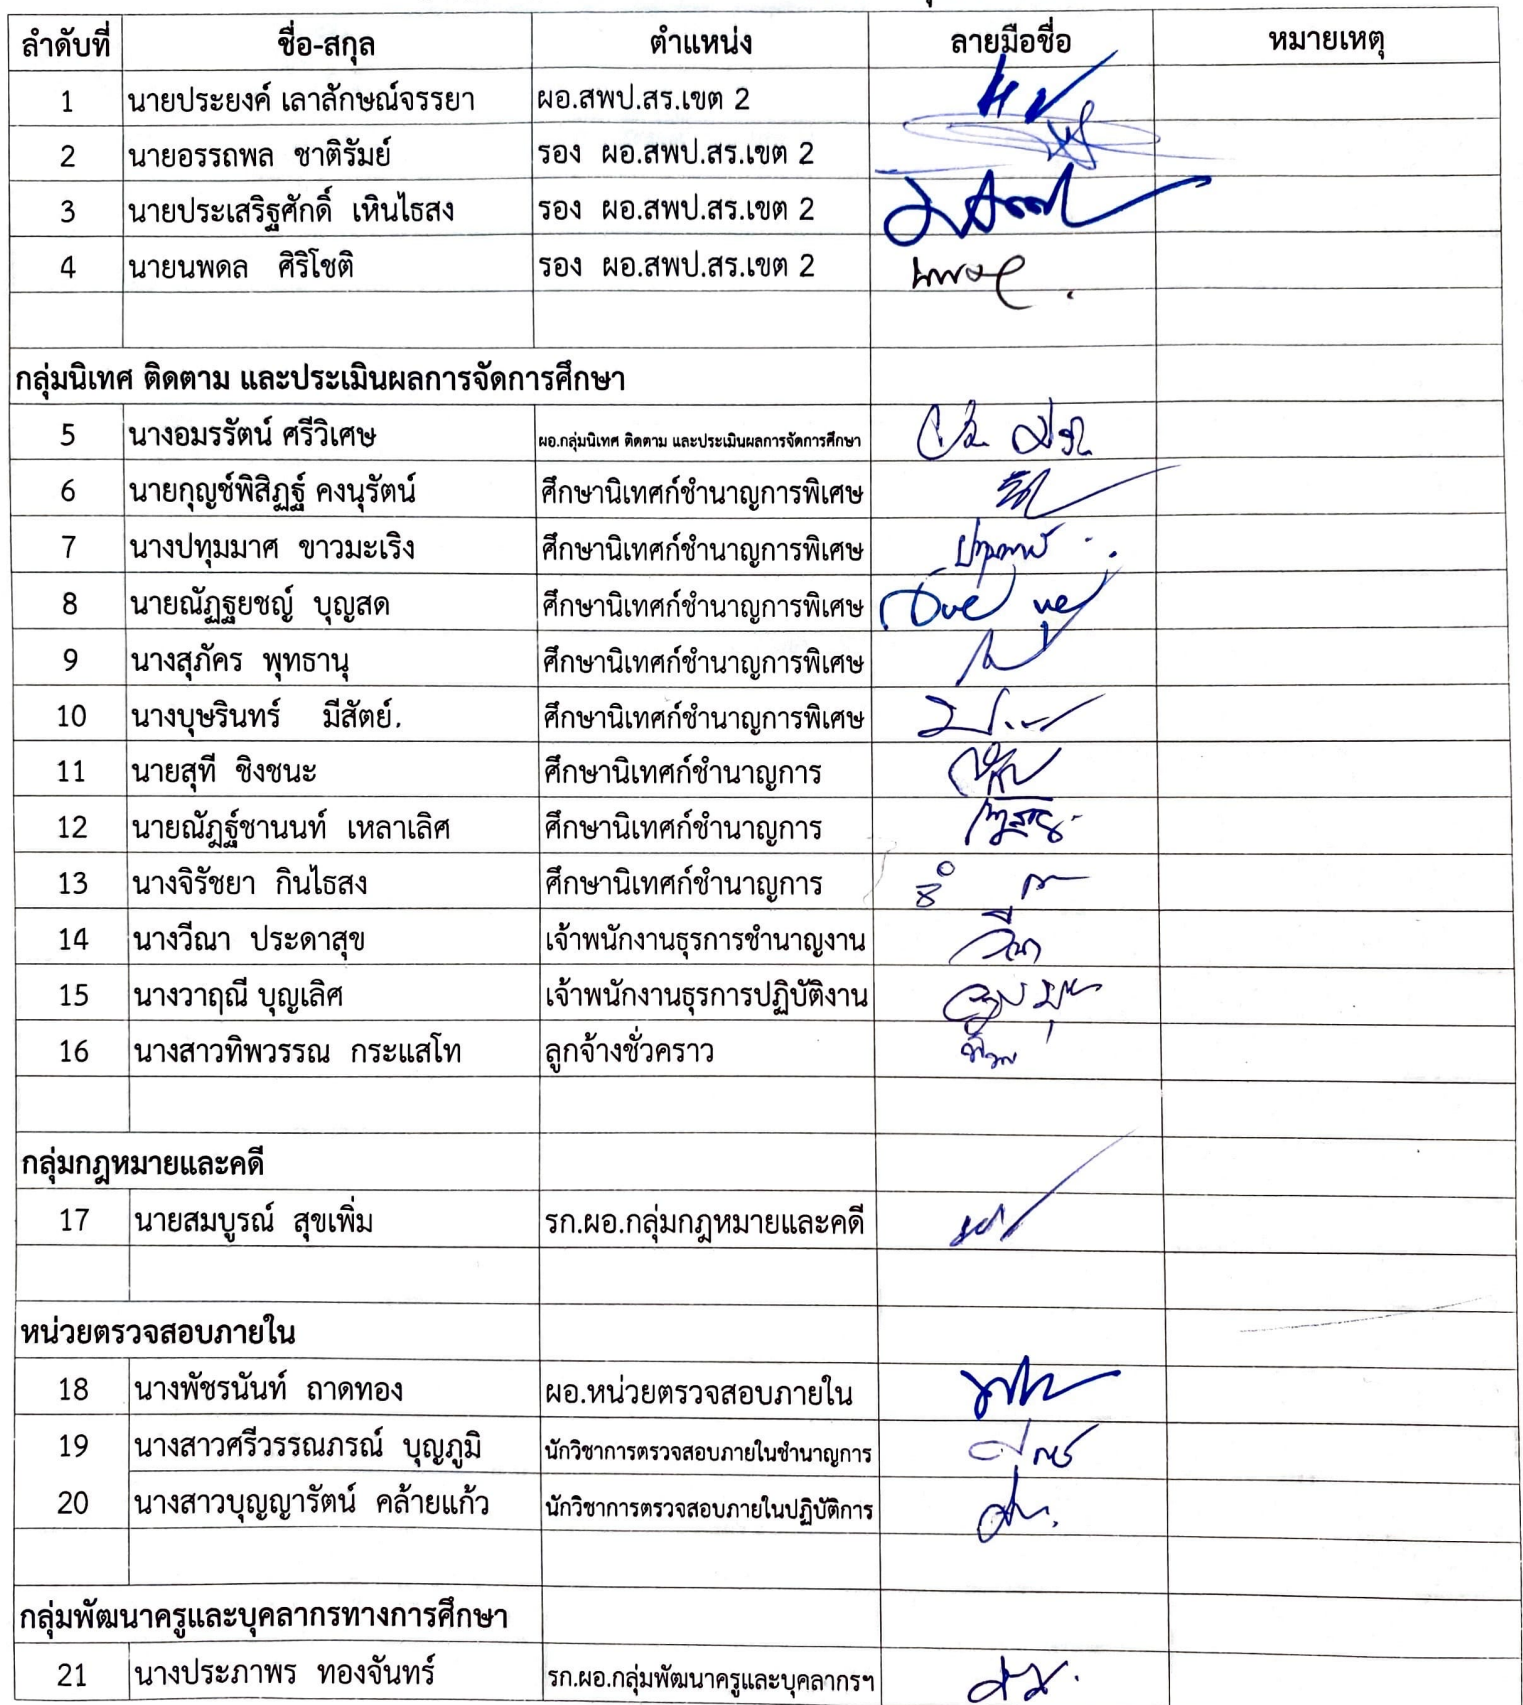 ลำดับที่ ชื่อ-สกุล ตำแหน่ง ลายมือชื่อ หมายเหตุ
1 นายประยงค์ เลาลักษณ์จรรยา ผอ.สพป.สร.เขต 2
2 นายอรรถพล ชาติรัมย์ รอง ผอ.สพป.สร.เขต 2
3 นายประเสริฐศักดิ์ เหินไธสง รอง ผอ.สพป.สร.เขต 2
4 นายนพดล ศิริโชติ รอง ผอ.สพป.สร.เขต 2
กลุ่มนิเทศ ติดตาม และประเมินผลการจัดการศึกษา
5 นางอมรรัตน์ ศรีวิเศษ ผอ.กลุ่มนิเทศ ติดตาม และประเมินผลการจัดการศึกษา
6 นายกุญช์พิสิฏฐ์ คงนุรัตน์ ศึกษานิเทศก์ชำนาญการพิเศษ
7 นางปทุมมาศ ขาวมะเริง ศึกษานิเทศก์ชำนาญการพิเศษ
8 นายณัฏฐยชญ์ บุญสด ศึกษานิเทศก์ชำนาญการพิเศษ
9 นางสุภัคร พุทธานุ ศึกษานิเทศก์ชำนาญการพิเศษ
10 นางบุษรินทร์ มีสัตย์. ศึกษานิเทศก์ชำนาญการพิเศษ
11 นายสุที ชิงชนะ ศึกษานิเทศก์ชำนาญการ
12 นายณัฎฐ์ชานนท์ เหลาเลิศ ศึกษานิเทศก์ชำนาญการ
13 นางจิรัชยา กินไธสง ศึกษานิเทศก์ชำนาญการ
14 นางวีณา ประดาสุข เจ้าพนักงานธุรการชำนาญงาน
15 นางวาฤณี บุญเลิศ เจ้าพนักงานธุรการปฏิบัติงาน
16 นางสาวทิพวรรณ กระแสโท ลูกจ้างชั่วคราว
กลุ่มกฎหมายและคดี
17 นายสมบูรณ์ สุขเพิ่ม รก.ผอ.กลุ่มกฎหมายและคดี
หน่วยตรวจสอบภายใน
18 นางพัชรนันท์ ถาดทอง ผอ.หน่วยตรวจสอบภายใน
19 นางสาวศรีวรรณภรณ์ บุญภูมิ นักวิชาการตรวจสอบภายในชำนาญการ
20 นางสาวบุญญารัตน์ คล้ายแก้ว นักวิชาการตรวจสอบภายในปฏิบัติการ
กลุ่มพัฒนาครูและบุคลากรทางการศึกษา
21 นางประภาพร ทองจันทร์ รก.ผอ.กลุ่มพัฒนาครูและบุคลากรฯ